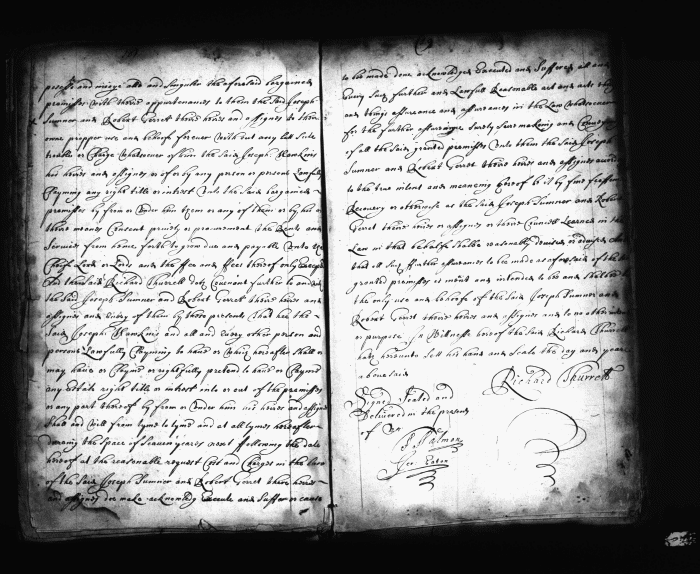 possess and injoye all and singuler the aforesaid bargained
premisses with theire appurtenances to them the said Joseph
Sumner and Robert Gerret theire heires and assignes to theire
owne propper use and behoofe forever without any lett suite
trouble or Charge whatsoever of him the said Joseph Hawkins
his heires and assignes or of by any person or persons Lawfully
Clayming any right title or intrest unto the said bargained
premisses by from or under him them or any of them or by his or
theire meanes Consent privity or procurement the Rents and
Services from hence forth to grow due and payable unto the
Cheife Lord or Lords and the fee and fees thereof only Except
And the said Richard Thurrett doth Covenant further to and with
the said Joseph Sumner and Robert Gerret theire heires and
assignes and every of them by these presents That hee the
said Joseph Hawkins and all and every other person and
persons Lawfully Clayming to have or which hereafter shall or
may have or Clayme or rightfully pretend to have or Clayme
any estate right title or intrest into or out of the premisses
or any part thereof by from or under him his heires and assignes
shall and will from tyme to tyme and at all tymes hereafter
dureing the space of seaven yeares next following the date
hereof at the reasonable request Cost and Charges in the Law
of the said Joseph Sumner and Robert Gerret theire heires
and assignes doe make acknowledg Execute and Suffer or cause
to be made done acknowledged Executed and Suffered all and
Every such further and Lawfull Reasonable act and acts thing
and things assurance and assurances in the Law whatsoever
for the further assurance surety sure makeing and
of all the said granted premisses unto them the said Joseph
Sumner and Robert Gerret theire heires and assignes
to the true intent and meaneing hereof be it by fine feoffment
Recovery or otherwise as the said Joseph Sumner and Robert
Gerret theire heires or assignes or theire Councell Learned in the
Law in that behalfe shalbe reasonably devised or advised
that all such further assurances to be made as aforesaid of the
granted premisses is ment and intended to bee and shall bee to
the only use and behoofe of the said Joseph Sumner and
Robert Gerret theire heires and assignes and to no other intent
or purpose In Witnesse hereof the said Richard Thurrett
hath hereunto sett his hand and seale the day and yeare
abovesaid
Richard Thurrett
Signed Sealed and
Delivered in the presents
of us
Halman
Geo: Eaton